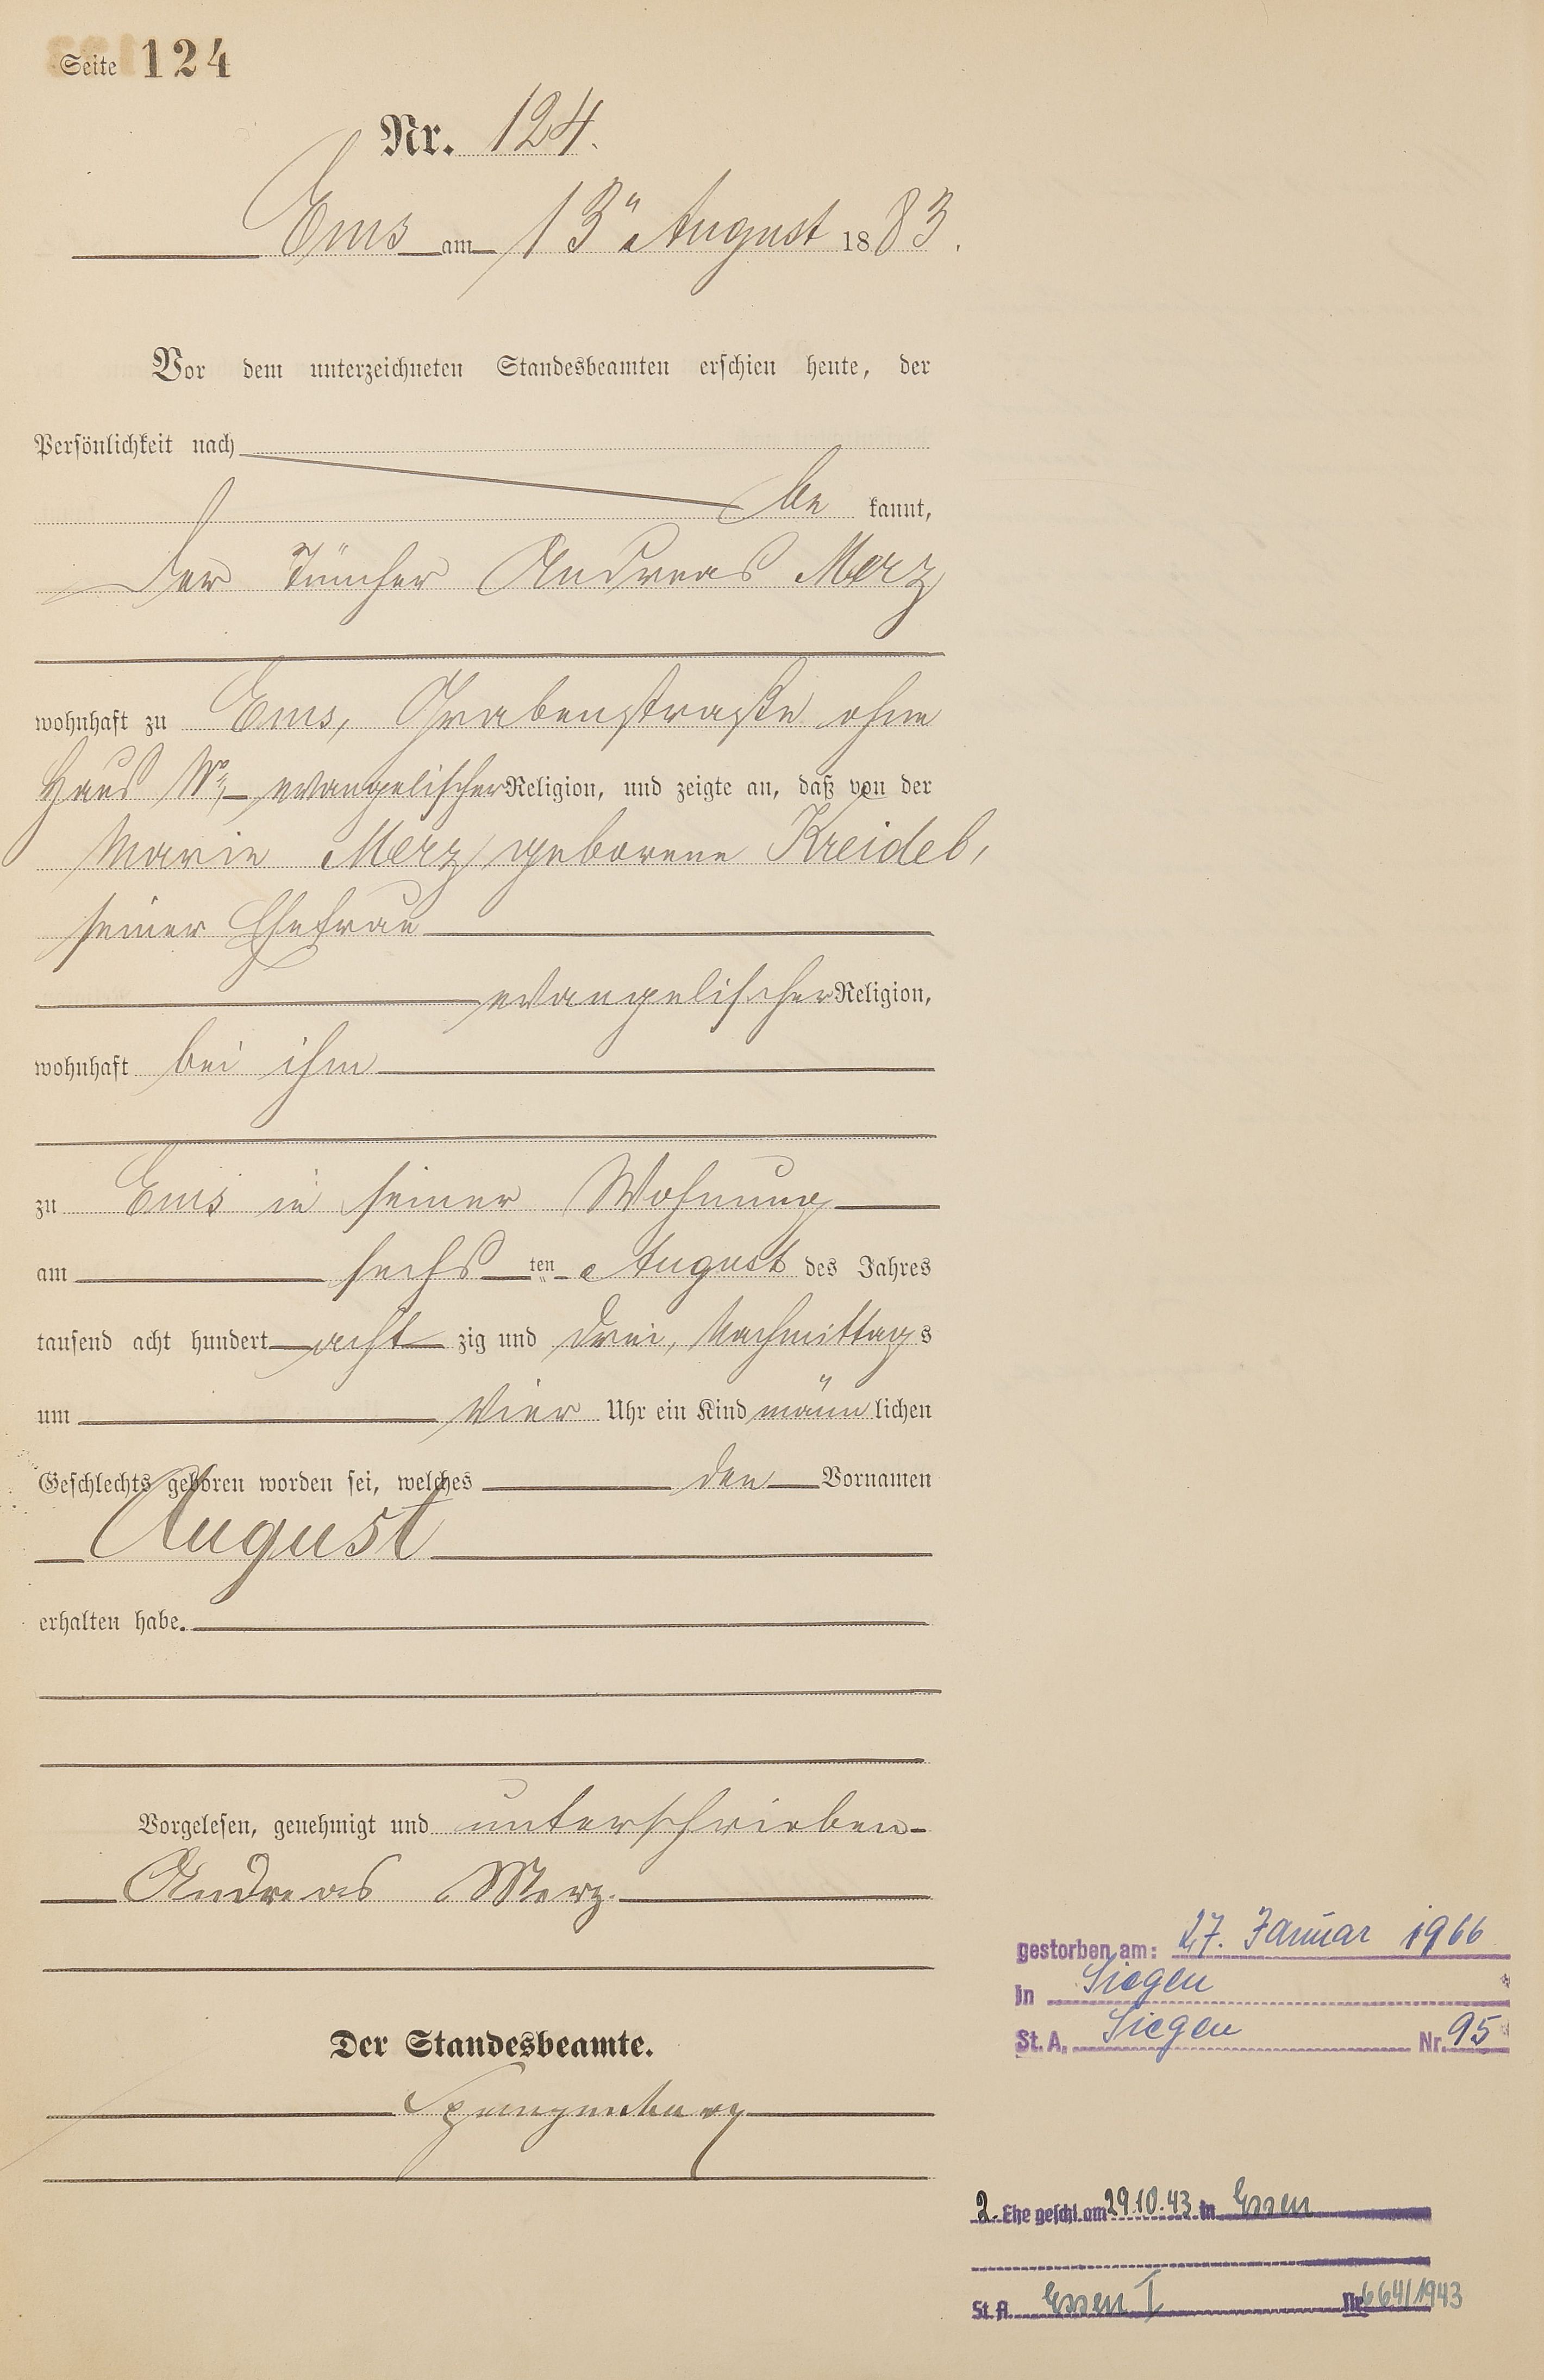 Seite 124
Nr. 124.
Ems am 13" August 1883.
Vor dem unterzeichneten Standesbeamten erschien heute, der
Persönlichkeit nach
be kannt,
der Tüncher Andreas Merz
wohnhaft zu Ems, Grabenstraße ohne
Haus No, evangelischer Religion, und zeigte an, daß von der
Marie Merz geborene Kreidel,
seiner Ehefrau
evangelischer Religion,
wohnhaft bei ihm
zu Ems in seiner Wohnung
am sechs ten August des Jahres
tausend acht hundert acht zig und drei, Nachmittags
um vier Uhr ein Kind männlichen
Geschlechts geboren worden sei, welches den Vornamen
August
erhalten habe.
Vorgelesen, genehmigt und unterschrieben
Andreas Merz.
Der Standesbeamte.
gestorben am: 27. Januar 1966
in Siegen
St. A. Siegen Nr. 95
2. Ehe geschl. am 29.10.43 in Essen
St. A. Essen I Nr. 664/1943